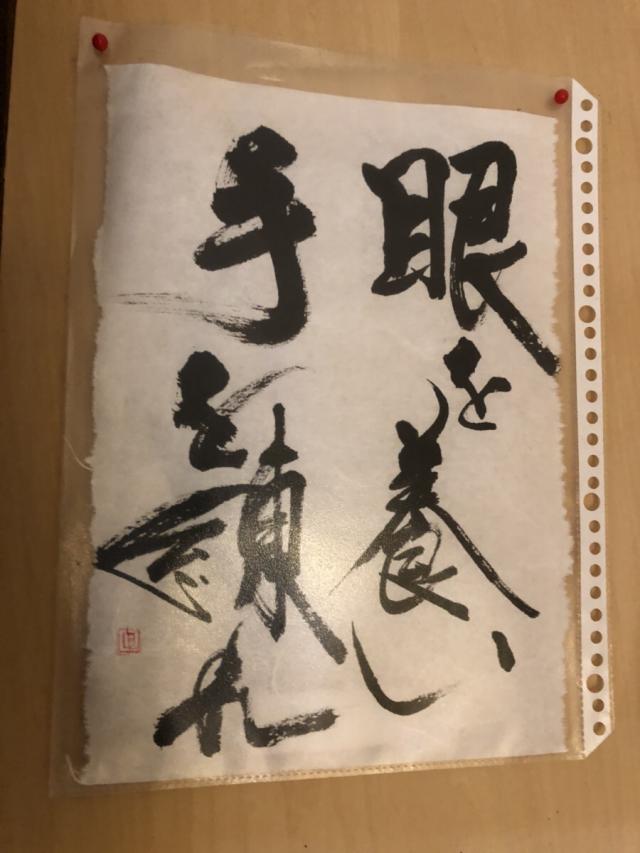 眼を養い
手を練れ